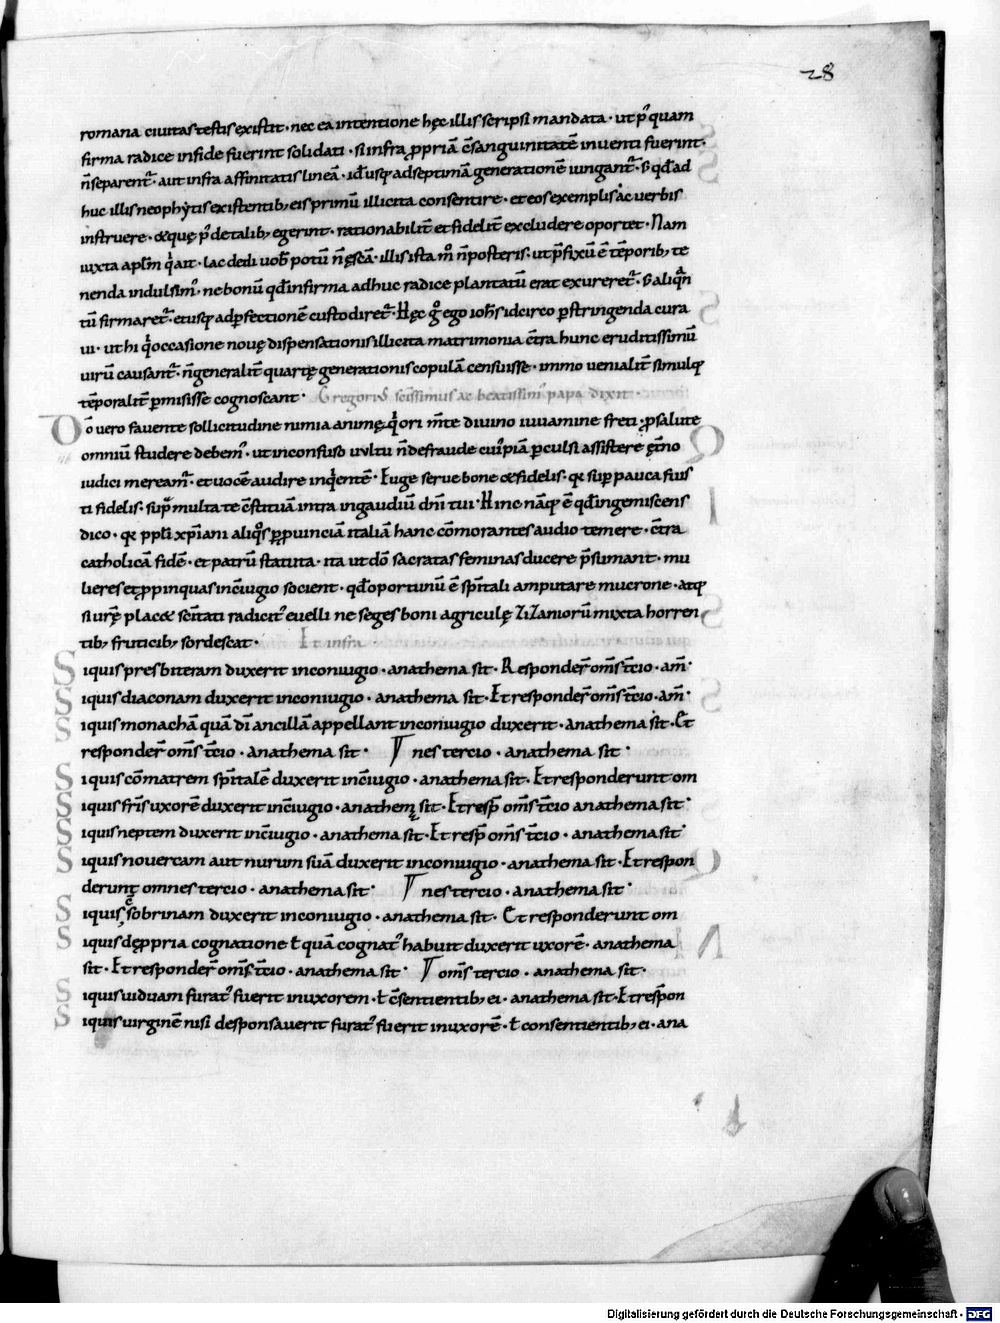 28
romana ciuitas testis existit · nec ea intentione hęc illis scripsi mandata · ut p̄quam
firma radice in fide fuerint solidati · si infra ꝓpriā c̄sanguinitatē inuenti fuerint ·
n̄ separent᷑ · aut infra affinitatis lineā · id ē usq; ad septimā generationē iungant᷑ · s; qđ ad
huc illis neophẏtis existentib; eis primū illicita consentire · et eos exemplis ac uerbis
instruere · & quę p᷒ de talib; egerint · rationabilit̄ et fidelit̄ excludere oportet · Nam
iuxta apl̄m q͛ ait · lac dedi uob̄ potū n̄ escā · illis ista m̊ n̄ posteris · ut p̄fixū ē tēporib; te
nenda indulsim᷒ · ne bonū qđ infirma adhuc radice plantatū erat exureret᷑ · s; aliqn̄
tū firmaret᷑ · et usq; ad ꝑfectionē custodiret᷑ · Hęc g̊ ego ioh̄s idcirco ꝑstringenda cura
ui · ut hi q͛ occasione nouę dispensationis illicita matrimonia c̄tra hunc eruditissimū
uirū causant᷑ · n̄ generalit̄ quartę generationis copulā censuisse · immo uenialit̄ simulq;
tēporalit̄ ꝑmisisse cognoscant · Gregori᷒ sc̄issimus ac beatissim᷒ papa dixit ·
Dō uero fauente sollicitudine nimia animę q͛ ori m̄te diuino iuuamine freti · ꝓ salute
omniū studere debem᷒ · ut in confuso uultu n̄ de fraude cui᷒piā ꝑculsi assistere ęt̄no
iudici mereamur · et uocē audire inq͛entē · Euge serue bone & fidelis · q; sup̄ pauca fuis
ti fidelis · sup̄ multa te c̄stituā intra in gaudiū dn̄i tui · Hinc nāq; ē qđ ingemiscens
dico · q; ppl̄i xp̄iani aliq̊s ꝑ ꝓuinciā italiā hanc cōmorantes audio temere · c̄tra
catholicā fidē · et patrū statuta · ita ut dō sacratas feminas ducere p̄sumant · mu
lieres et ꝓpinquas in c̄iugio socient · qđ oportunū ē sp̄itali amputare mucrone · atq;
si ur̄ę plac& sc̄itati radicit᷒ euelli ne seges boni agriculę zizaniorū mixta horren
tib; fruticib; sordescat · Et infra ·
Siquis presbiteram duxerit in coniugio · anathema sit · Responder̄ om̄s t̄cio · am̄ ·
Siquis diaconam duxerit in coniugio · anathema sit · Et responder̄ om̄s t̄cio · am̄ ·
Siquis monachā quā dī ancillā appellant in coniugio duxerit · anathema sit · Et
responder̄ om̄s t̄cio · anathema sit · nes tercio · anathema sit ·
Siquis cōmatrem sp̄italē duxerit in c̄iugio · anathema sit · Et responderunt om
Siquis fr̄is uxorē duxerit in c̄iugio · anathema sit · Et resp̄ om̄s t̄cio anathema sit ·
Siquis neptem duxerit in c̄iugio · anathema sit · Et resp̄ om̄s t̄cio · anathema sit ·
Siquis nouercam aut nurum suā duxerit in coniugio · anathema sit · Et respon
derunt omnes tercio · anathema sit · nes tercio · anathema sit ·
Siquis c̄sobrinam duxerit in coniugio · anathema sit · Et responderunt om
Siquis de ꝓpria cognatione ł quā cognat᷒ habuit duxerit uxorē · anathema
sit · Et responder̄ om̄s t̄cio · anathema sit · om̄s tercio · anathema sit ·
Siquis uiduam furat᷒ fuerit in uxorem · ł c̄sentientib; ei · anathema sit · Et resp̄on
Siquis uirginē nisi desponsauerit furat᷒ fuerit in uxorē · ł consentientib; ei · ana
Digitalisierung gefördert durch die Deutsche Forschungsgemeinschaft - DFG